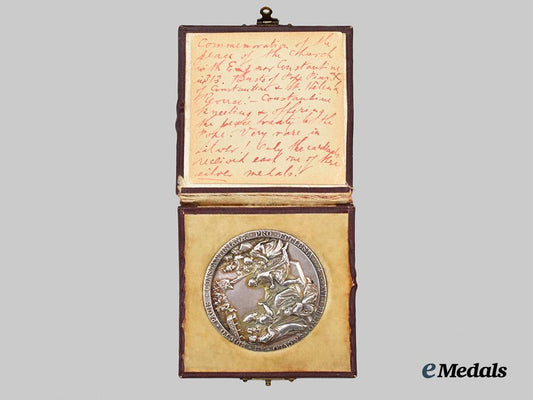 Commemoration of the
peace of the Church
with Emperor Constantine
in 313. Busts of Pope Pius X,
of Constantine & St. Helena
Reverse: - Constantine
kneeling & offering
the peace treaty to the
Pope. Very rare in
silver! Only the cardinals
received each one of these
silver medals!
PRO ECCLESIA
eMedals